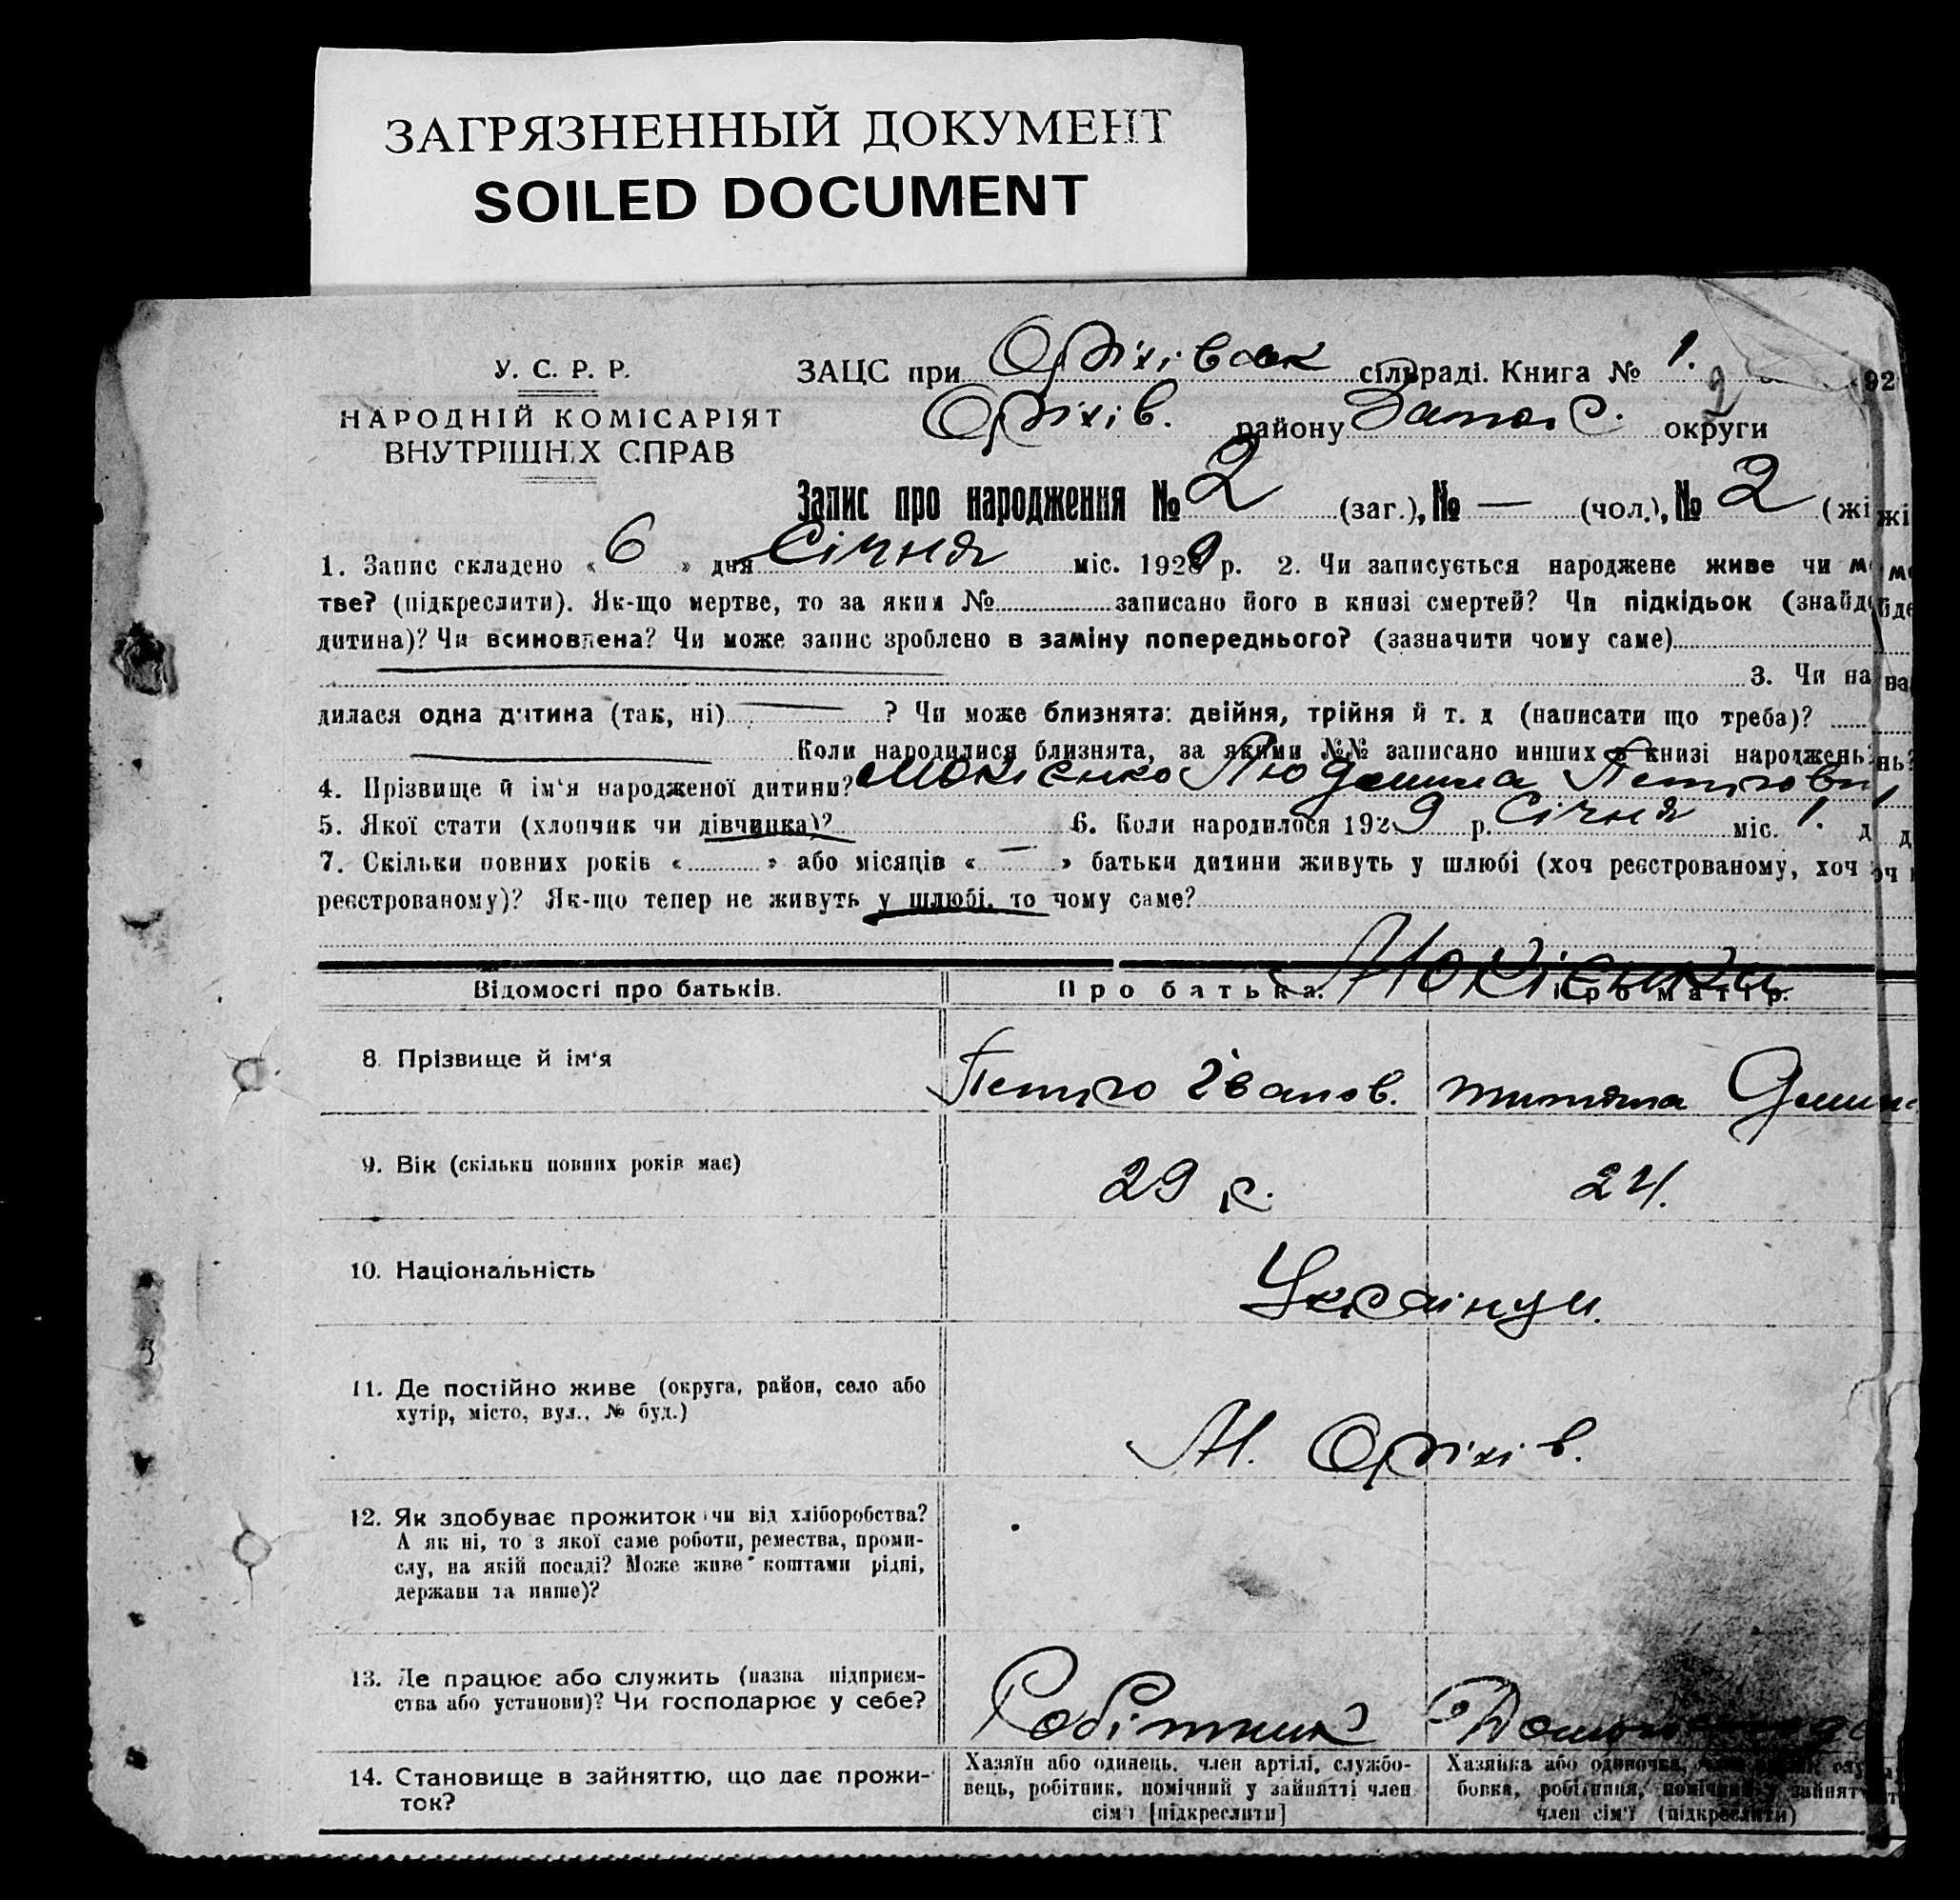 ЗАГРЯЗНЕННЫЙ ДОКУМЕНТ
SOILED DOCUMENT
У. С. Р. Р.
НАРОДНІЙ КОМІСАРІЯТ
ВНУТРІШНІХ СПРАВ
ЗАЦС при Оріхівськ сільраді. Книга № 1. 192
Оріхів. району Запоріс. округи
Запис про народження № 2 (заг.), № — (чол.), № 2 (жі
1. Запис складено « 6 » дня Січня міс. 1929 р. 2. Чи записується народжене живе чи м
тве? (підкреслити). Як-що мертве, то за яким № записано його в книзі смертей? Чи підкідьок (знайд
дитина)? Чи всиновлена? Чи може запис зроблено в заміну попереднього? (зазначити чому саме)
3. Чи на
дилася одна дитина (так, ні) ? Чи може близнята: двійня, трійня й т. д (написати що треба)?
Коли народилися близнята, за якими №№ записано инших в книзі народжень?
4. Прізвище й ім'я народженої дитини? Мокієнко Людмила Петров
5. Якої стати (хлопчик чи дівчинка)? 6. Коли народилося 1929 р. Січня міс. 1. д
7. Скільки повних років « » або місяців « — » батьки дитини живуть у шлюбі (хоч реєстрованому, хоч
реєстрованому)? Як-що тепер не живуть у шлюбі, то чому саме?
Мокієнки
Відомості про батьків. Про батька. Про матір.
8. Прізвище й ім'я Петро Іванов.
9. Вік (скільки повних років має) 29 р. 24.
10. Національність Українці.
11. Де постійно живе (округа, район, село або
хутір, місто, вул., № буд.)
М. Оріхів.
12. Як здобуває прожиток чи від хліборобства?
А як ні, то з якої саме роботи, ремества, проми-
слу, на якій посаді? Може живе коштами рідні,
держави та инше)?
13. Де працює або служить (назва підприєм-
ства або установи)? Чи господарює у себе?
Робітник
14. Становище в зайняттю, що дає прожи-
ток?
Хазяїн або одинець, член артілі, службо-
вець, робітник, помічний у зайнятті член
сім'ї [підкреслити]
Хазяйка або одиночка,
бовка, робітниця, помічний у зайнят
член сім'ї (підкреслити)